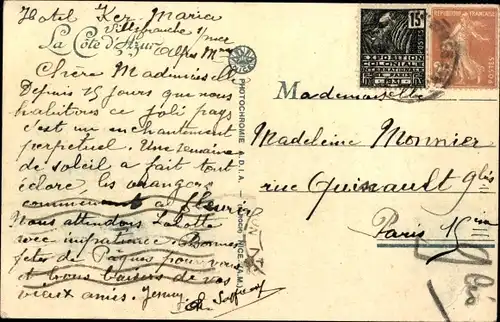 Hotel Ker Maria
Villefranche s/ Nice
La Côte d'Azur
Alpes Mmes
Chère Mademoiselle
Depuis 15 jours que nous
habitons ce joli pays
c'est un enchantement
perpetuel. Une semaine
de soleil a fait tout
éclore, les orangers
commencent à fleurir
Nous attendons Lalotte
avec impatience. Bonnes
fêtes de Pâques pour vous
et bons baisers de vos
vieux amies. Jenny
PHOTOCHROMIE A.D.I.A. NICE (A.M.)
15c
POSTES
EXPOSITION
REPUBLIQUE FRANÇAISE
Mademoiselle
Madeleine Monnier
rue Quinault
Paris 15em